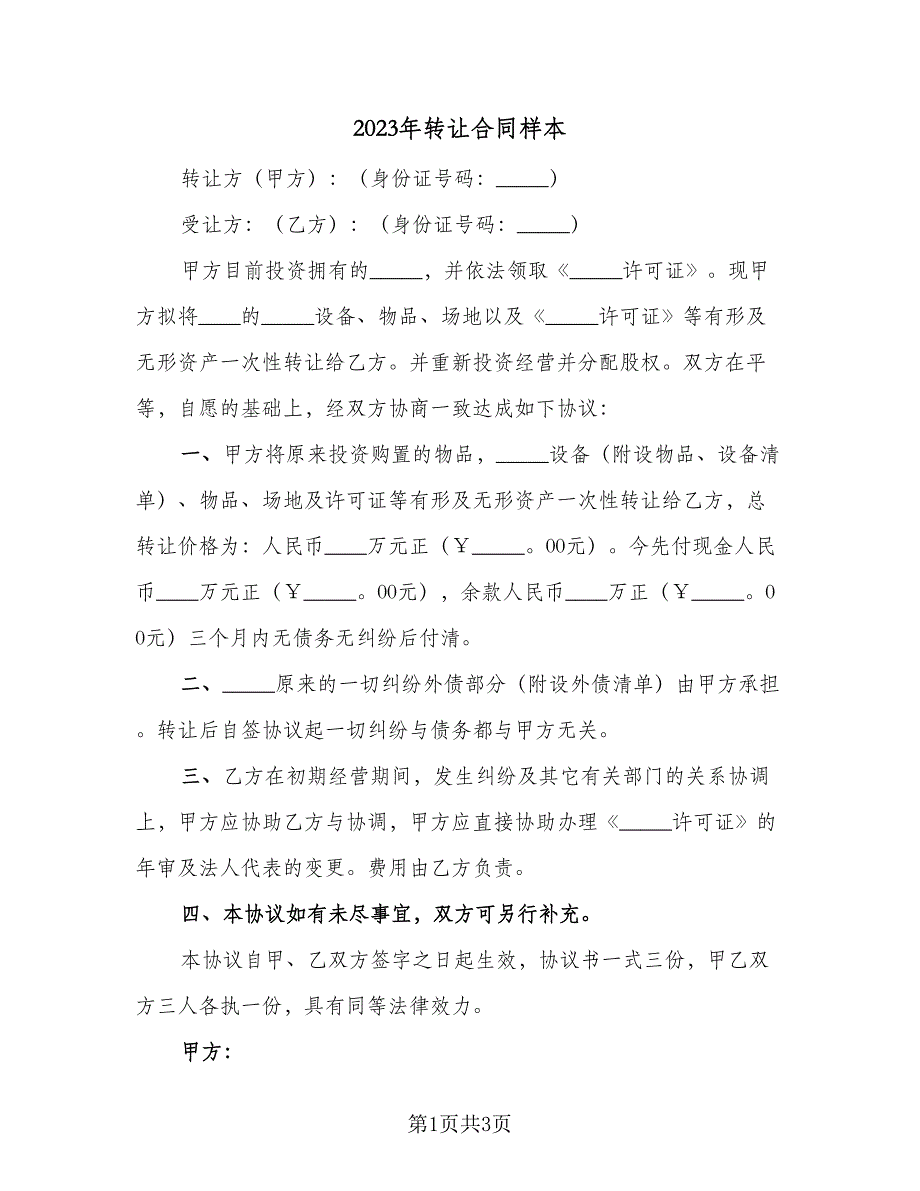 2023年转让合同样本
转让方（甲方）：（身份证号码：_____）
受让方：（乙方）：（身份证号码：_____）
甲方目前投资拥有的_____，并依法领取《_____许可证》。现甲
方拟将____的_____设备、物品、场地以及《_____许可证》等有形及
无形资产一次性转让给乙方。并重新投资经营并分配股权。双方在平
等，自愿的基础上，经双方协商一致达成如下协议：
一、甲方将原来投资购置的物品，_____设备（附设物品、设备清
单）、物品、场地及许可证等有形及无形资产一次性转让给乙方，总
转让价格为：人民币____万元正（￥_____。00元）。今先付现金人民
币____万元正（￥_____。00元），余款人民币____万正（￥_____。0
0元）三个月内无债务无纠纷后付清。
二、_____原来的一切纠纷外债部分（附设外债清单）由甲方承担
。转让后自签协议起一切纠纷与债务都与甲方无关。
三、乙方在初期经营期间，发生纠纷及其它有关部门的关系协调
上，甲方应协助乙方与协调，甲方应直接协助办理《_____许可证》的
年审及法人代表的变更。费用由乙方负责。
四、本协议如有未尽事宜，双方可另行补充。
本协议自甲、乙双方签字之日起生效，协议书一式三份，甲乙双
方三人各执一份，具有同等法律效力。
甲方：
第1页共3页